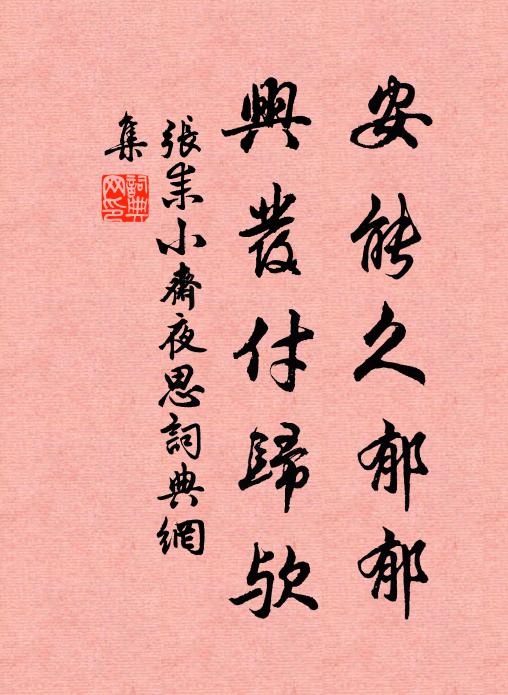 安能久郁郁
興發付歸欤
張耒小齋夜思詞典網
集
詞典
网印